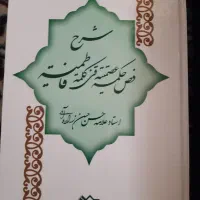 شرح
فص حکمة عصمتیة فی کلمة فاطمیة
استاد علامه حسن حسن زاده آملی